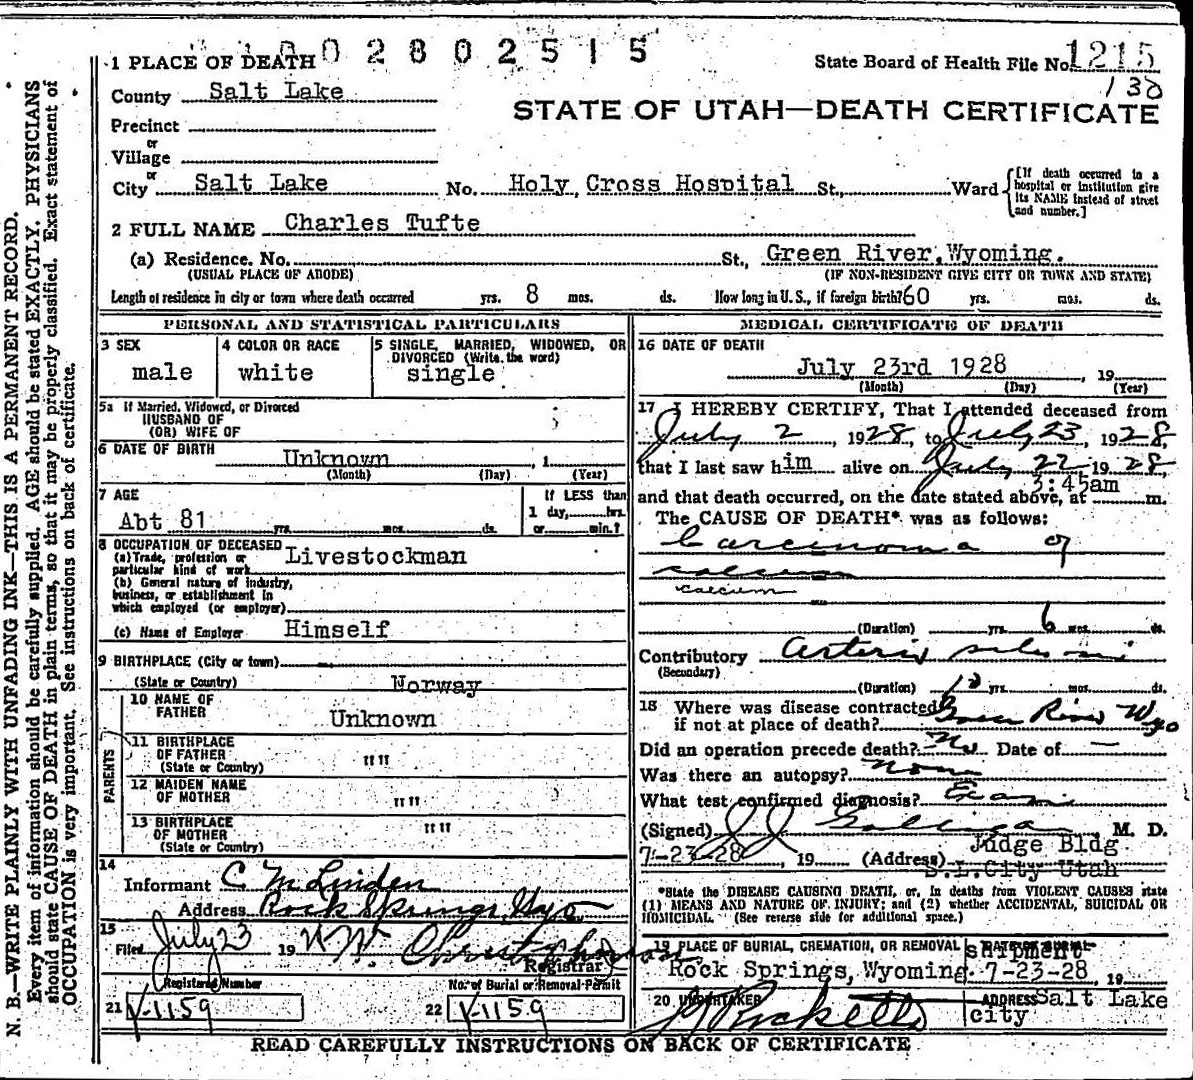 002802515
1 PLACE OF DEATH
State Board of Health File No. 1215
130
County Salt Lake
STATE OF UTAH—DEATH CERTIFICATE
Precinct
or
Village
or
City Salt Lake No. Holy Cross Hospital St., Ward
[If death occurred in a hospital or institution give its NAME instead of street and number.]
2 FULL NAME Charles Tufte
(a) Residence. No. St., Green River, Wyoming.
(USUAL PLACE OF ABODE) (IF NON-RESIDENT GIVE CITY OR TOWN AND STATE)
Length of residence in city or town where death occurred yrs. 8 mos. ds. How long in U.S., if foreign birth? 60 yrs. mos. ds.
PERSONAL AND STATISTICAL PARTICULARS
3 SEX
male
4 COLOR OR RACE
white
5 SINGLE, MARRIED, WIDOWED, OR DIVORCED (Write the word)
single
5a If Married, Widowed, or Divorced
HUSBAND OF
(OR) WIFE OF
6 DATE OF BIRTH Unknown , 1
(Month) (Day) (Year)
7 AGE
Abt 81 yrs. mos. ds.
If LESS than
1 day, hrs.
or min.?
8 OCCUPATION OF DECEASED
(a) Trade, profession or
particular kind of work Livestockman
(b) General nature of industry,
business, or establishment in
which employed (or employer)
(c) Name of Employer Himself
9 BIRTHPLACE (City or town)
(State or Country) Norway
PARENTS
10 NAME OF
FATHER Unknown
11 BIRTHPLACE
OF FATHER """"
(State or Country)
12 MAIDEN NAME
OF MOTHER """"
13 BIRTHPLACE
OF MOTHER """"
(State or Country)
14
Informant C M Linden
Address Rock Springs Wyo
15
Filed July 23 19 W. Christopherson
Registrar
Registered Number
No. of Burial or Removal Permit
21 V-1159
22 V-1159
MEDICAL CERTIFICATE OF DEATH
16 DATE OF DEATH
July 23rd 1928 , 19
(Month) (Day) (Year)
17 I HEREBY CERTIFY, That I attended deceased from
July 2, 1928, to July 23, 1928
that I last saw him alive on July 22, 1928,
3:45am
and that death occurred, on the date stated above, at m.
The CAUSE OF DEATH* was as follows:
Carcinoma of
caecum
caecum
(Duration) yrs. 6 mos. ds.
Contributory Arterio sclerosis
(Secondary)
(Duration) 10 yrs. mos. ds.
18 Where was disease contracted
if not at place of death? Green River Wyo
Did an operation precede death? No Date of —
Was there an autopsy? None
What test confirmed diagnosis? Exam
(Signed) J J Galligan, M. D.
7-23-28, 19 (Address) Judge Bldg.
S.L.City Utah
*State the DISEASE CAUSING DEATH, or, in deaths from VIOLENT CAUSES state
(1) MEANS AND NATURE OF INJURY; and (2) whether ACCIDENTAL, SUICIDAL OR
HOMICIDAL. (See reverse side for additional space.)
19 PLACE OF BURIAL, CREMATION, OR REMOVAL
Rock Springs, Wyoming.
DATE OF BURIAL
shipment
7-23-28, 19
20 UNDERTAKER
J Ricketts
ADDRESS Salt Lake
city
READ CAREFULLY INSTRUCTIONS ON BACK OF CERTIFICATE
N. B.—WRITE PLAINLY WITH UNFADING INK—THIS IS A PERMANENT RECORD.
Every item of information should be carefully supplied. AGE should be stated EXACTLY. PHYSICIANS
should state CAUSE OF DEATH in plain terms, so that it may be properly classified. Exact statement of
OCCUPATION is very important. See instructions on back of certificate.